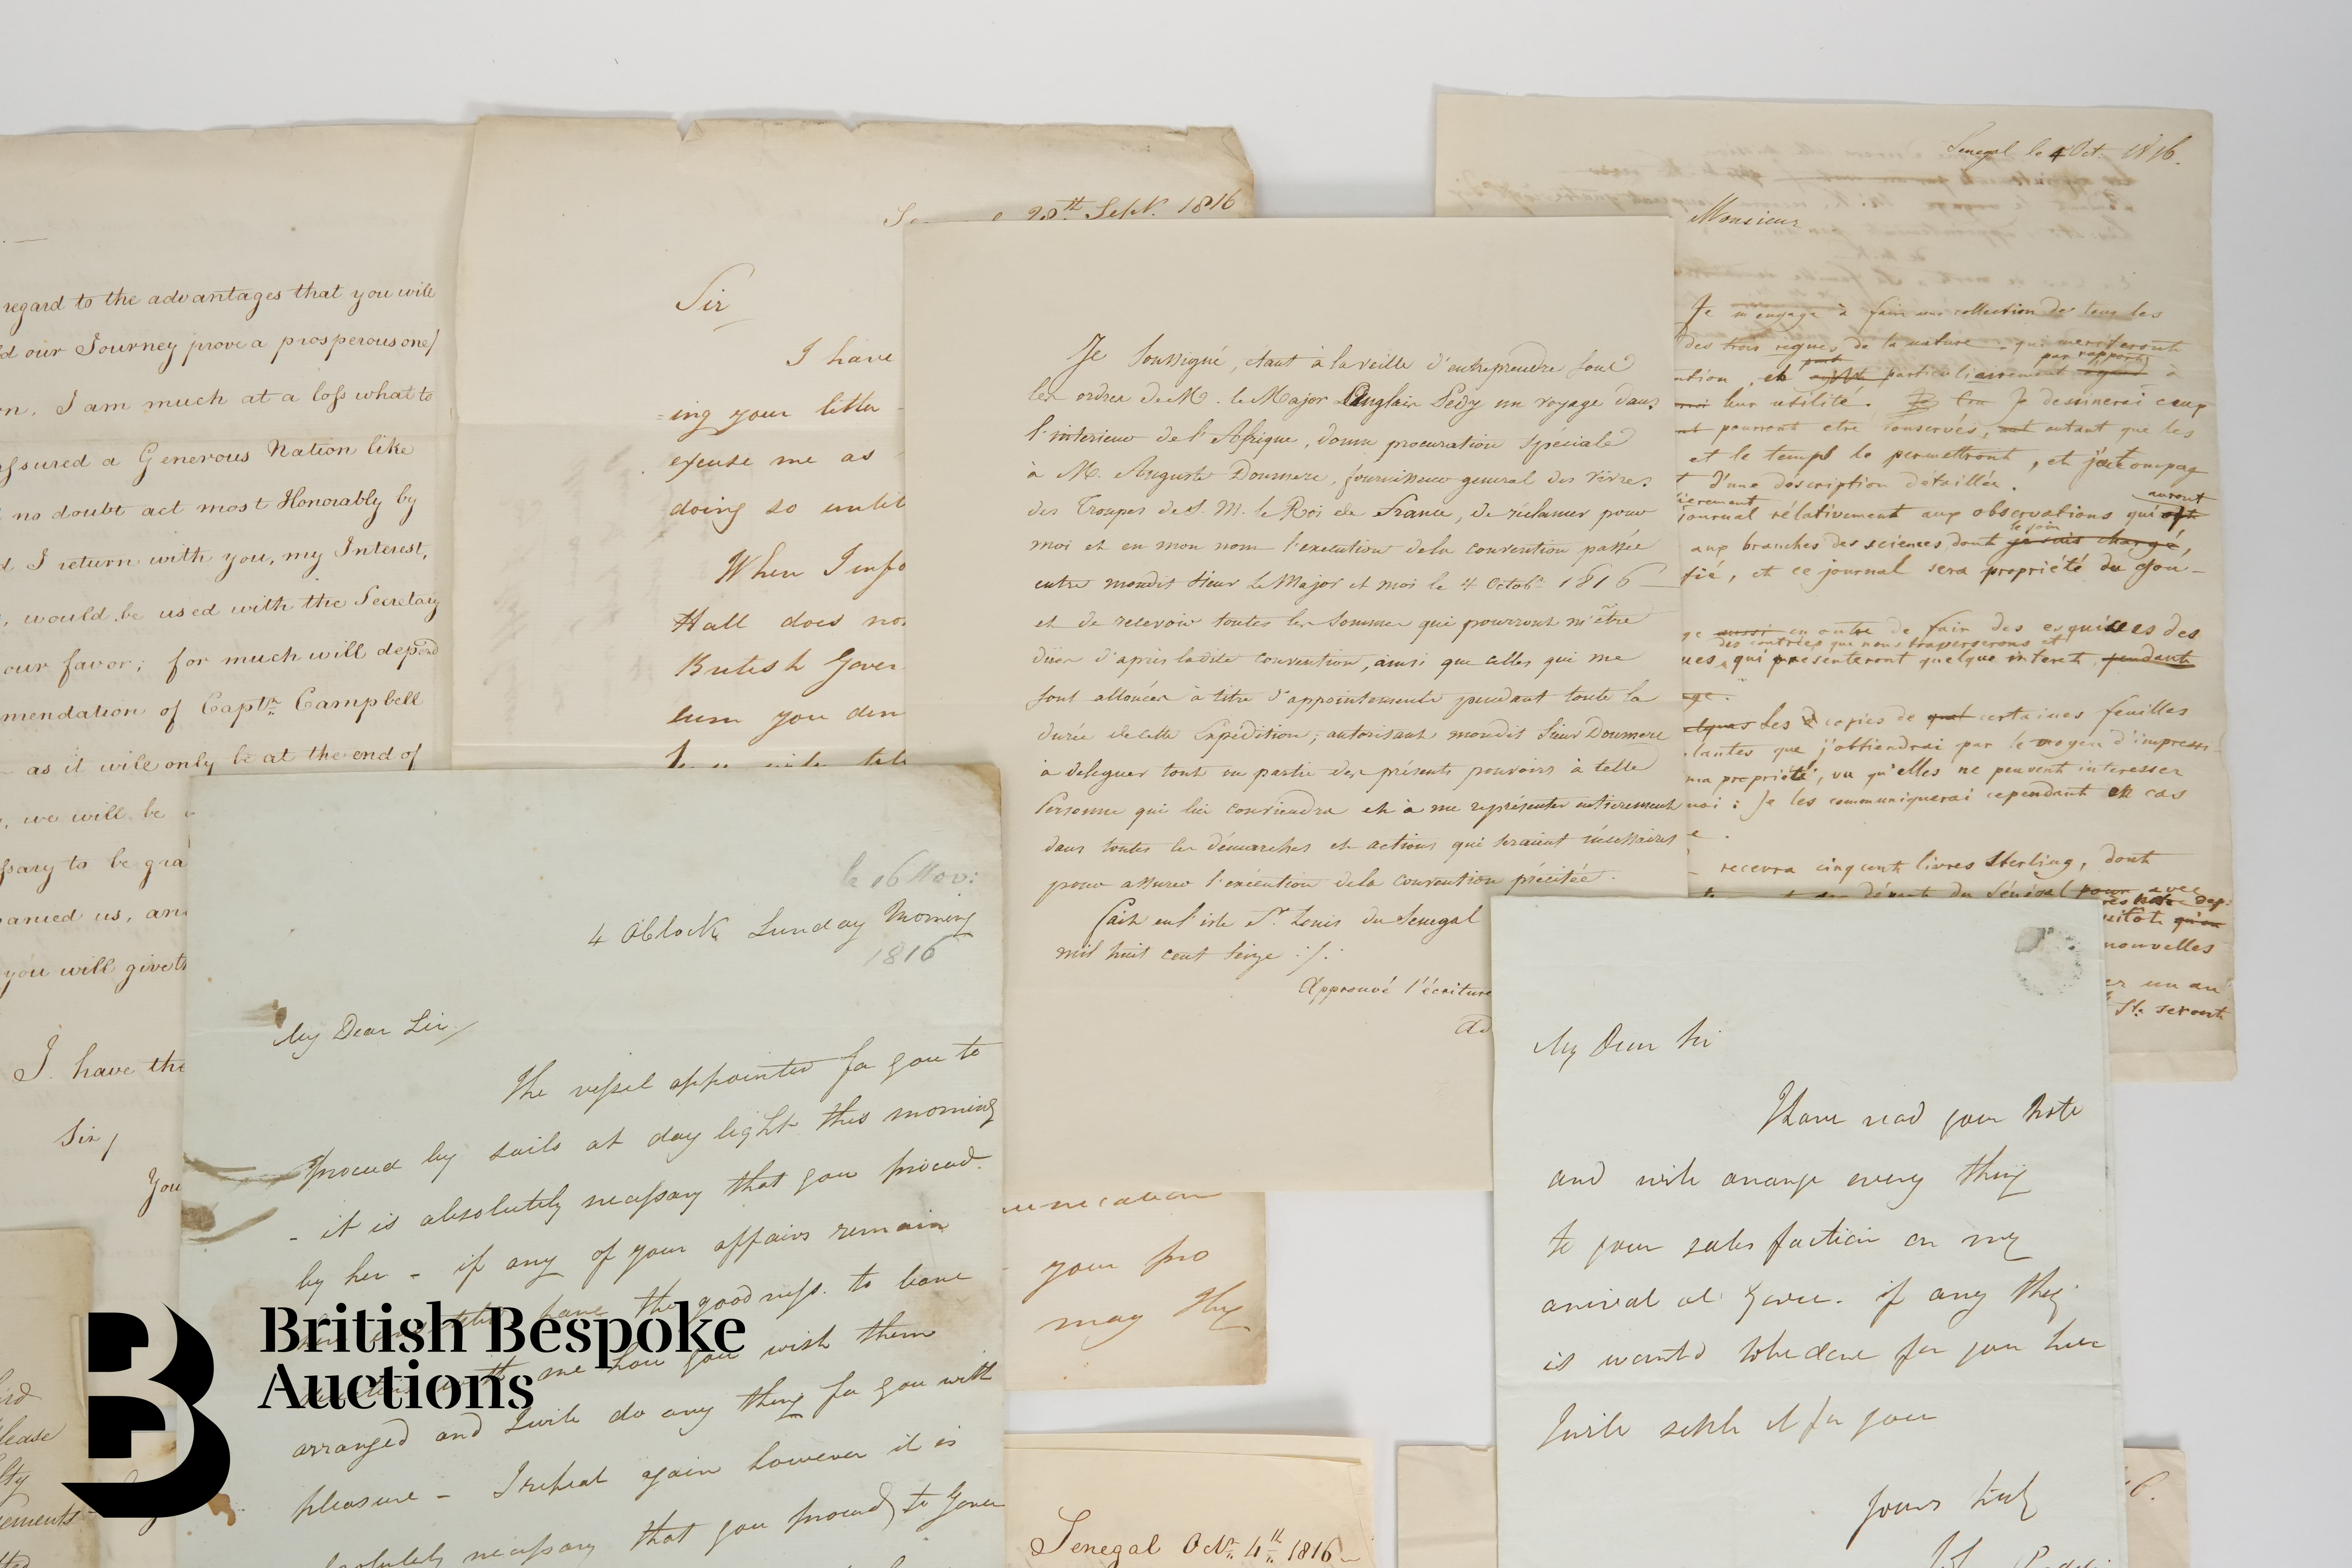 regard to the advantages that you will
our Journey prove a prosperous one/
I am much at a loss what to
assured a Generous Nation like
no doubt act most Honorably by
I return with you, my Interest,
would be used with the Secretary
our favor; for much will depend
mendation of Captn. Campbell
as it will only be at the end of
we will be
ssary to be gra
panied us, and
you will give th
I have the
Sir/
You
28th Sept. 1816
Sir
I have
=ing your letter
excuse me as
doing so until
When I info
Hall does not
British Gover
sum you dem
Je Soussigné, étant à la veille d'entreprendre sous
les ordres de M. le Major Peddy un voyage dans
l'interieur de l'Afrique, donne procuration spéciale
à M. Auguste Doumere, fournisseur general des vivres
des Troupes de S. M. le Roi de France, de réclamer pour
moi et en mon nom l'execution de la convention passée
entre mondit Sieur le Major et moi le 4 Octobr. 1816
et de recevoir toutes les sommes qui pourront m'être
dües d'après ladite convention, ainsi que celles qui me
sont allouées à titre d'appointements pendant toute la
durée de cette Expédition; autorisant mondit Sieur Doumere
à deleguer tout ou partie des présents pouvoirs à telle
Personne qui lui conviendra et à me représenter entierement
dans toutes les démarches et actions qui seraient nécessaires
pour assurer l'exécution de la convention précitée.
Fait en l'isle St. Louis du Senegal
mil huit cent seize :/:
Approuvé l'écriture
Senegal le 4 Oct. 1816.
Monsieur
Je m'engage à faire une collection de tous les
des trois regnes de la nature qui meriteront
par rapport
et particulierement à
leur utilité. Je dessinerai ceux
pourront etre conservés, autant que les
et le temps le permettront, et j'accompag
d'une description détaillée.
auront
journal rélativement aux observations qui
le soin
aux branches des sciences dont je suis chargé,
fié, et ce journal sera propriété du Gou-
en outre de fair des esquisses des
des contrées que nous traverserons et
ues, qui presenteront quelque interet, pendant
Les copies de certaines feuilles
lantes que j'obtiendrai par le moyen d'impressi-
ma propriété, vu qu'elles ne peuvent interesser
moi: Je les communiquerai cependant en cas
recevra cinqcent livres Sterling, dont
départ du Sénégal pour avec
nouvelles
un an
St. seront
le 16 Nov:
4 OClock Sunday Morning
1816
My Dear Sir/
The vessel appointed for you to
proceed by sails at day light this morning
- it is absolutely necessary that you proceed
by her - if any of your affairs remain
have the goodness to leave
me how you wish them
arranged and I will do any thing for you with
pleasure - I repeat again however it is
absolutely necessary that you proceed to Goree
your pro
may They
My Dear Sir
I have read your Note
and will arrange every thing
to your satisfaction on my
arrival at Goree. if any thing
is wanted to be done for you here
I will settle it for you
Yours truly
Senegal Octr. 4th 1816
British Bespoke
Auctions